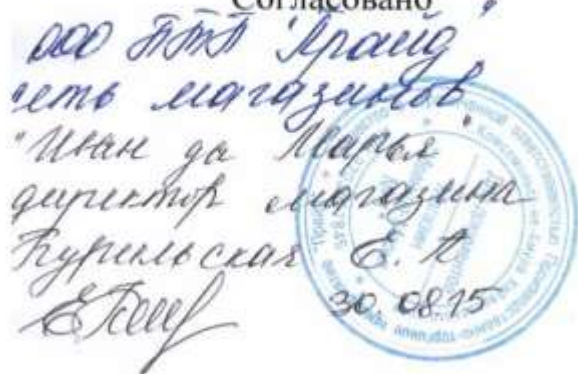 Согласовано
ООО ПТП "Прайд"
сеть магазинов
"Иван да Марья"
директор магазина
Курильская Е. А
30.08.15